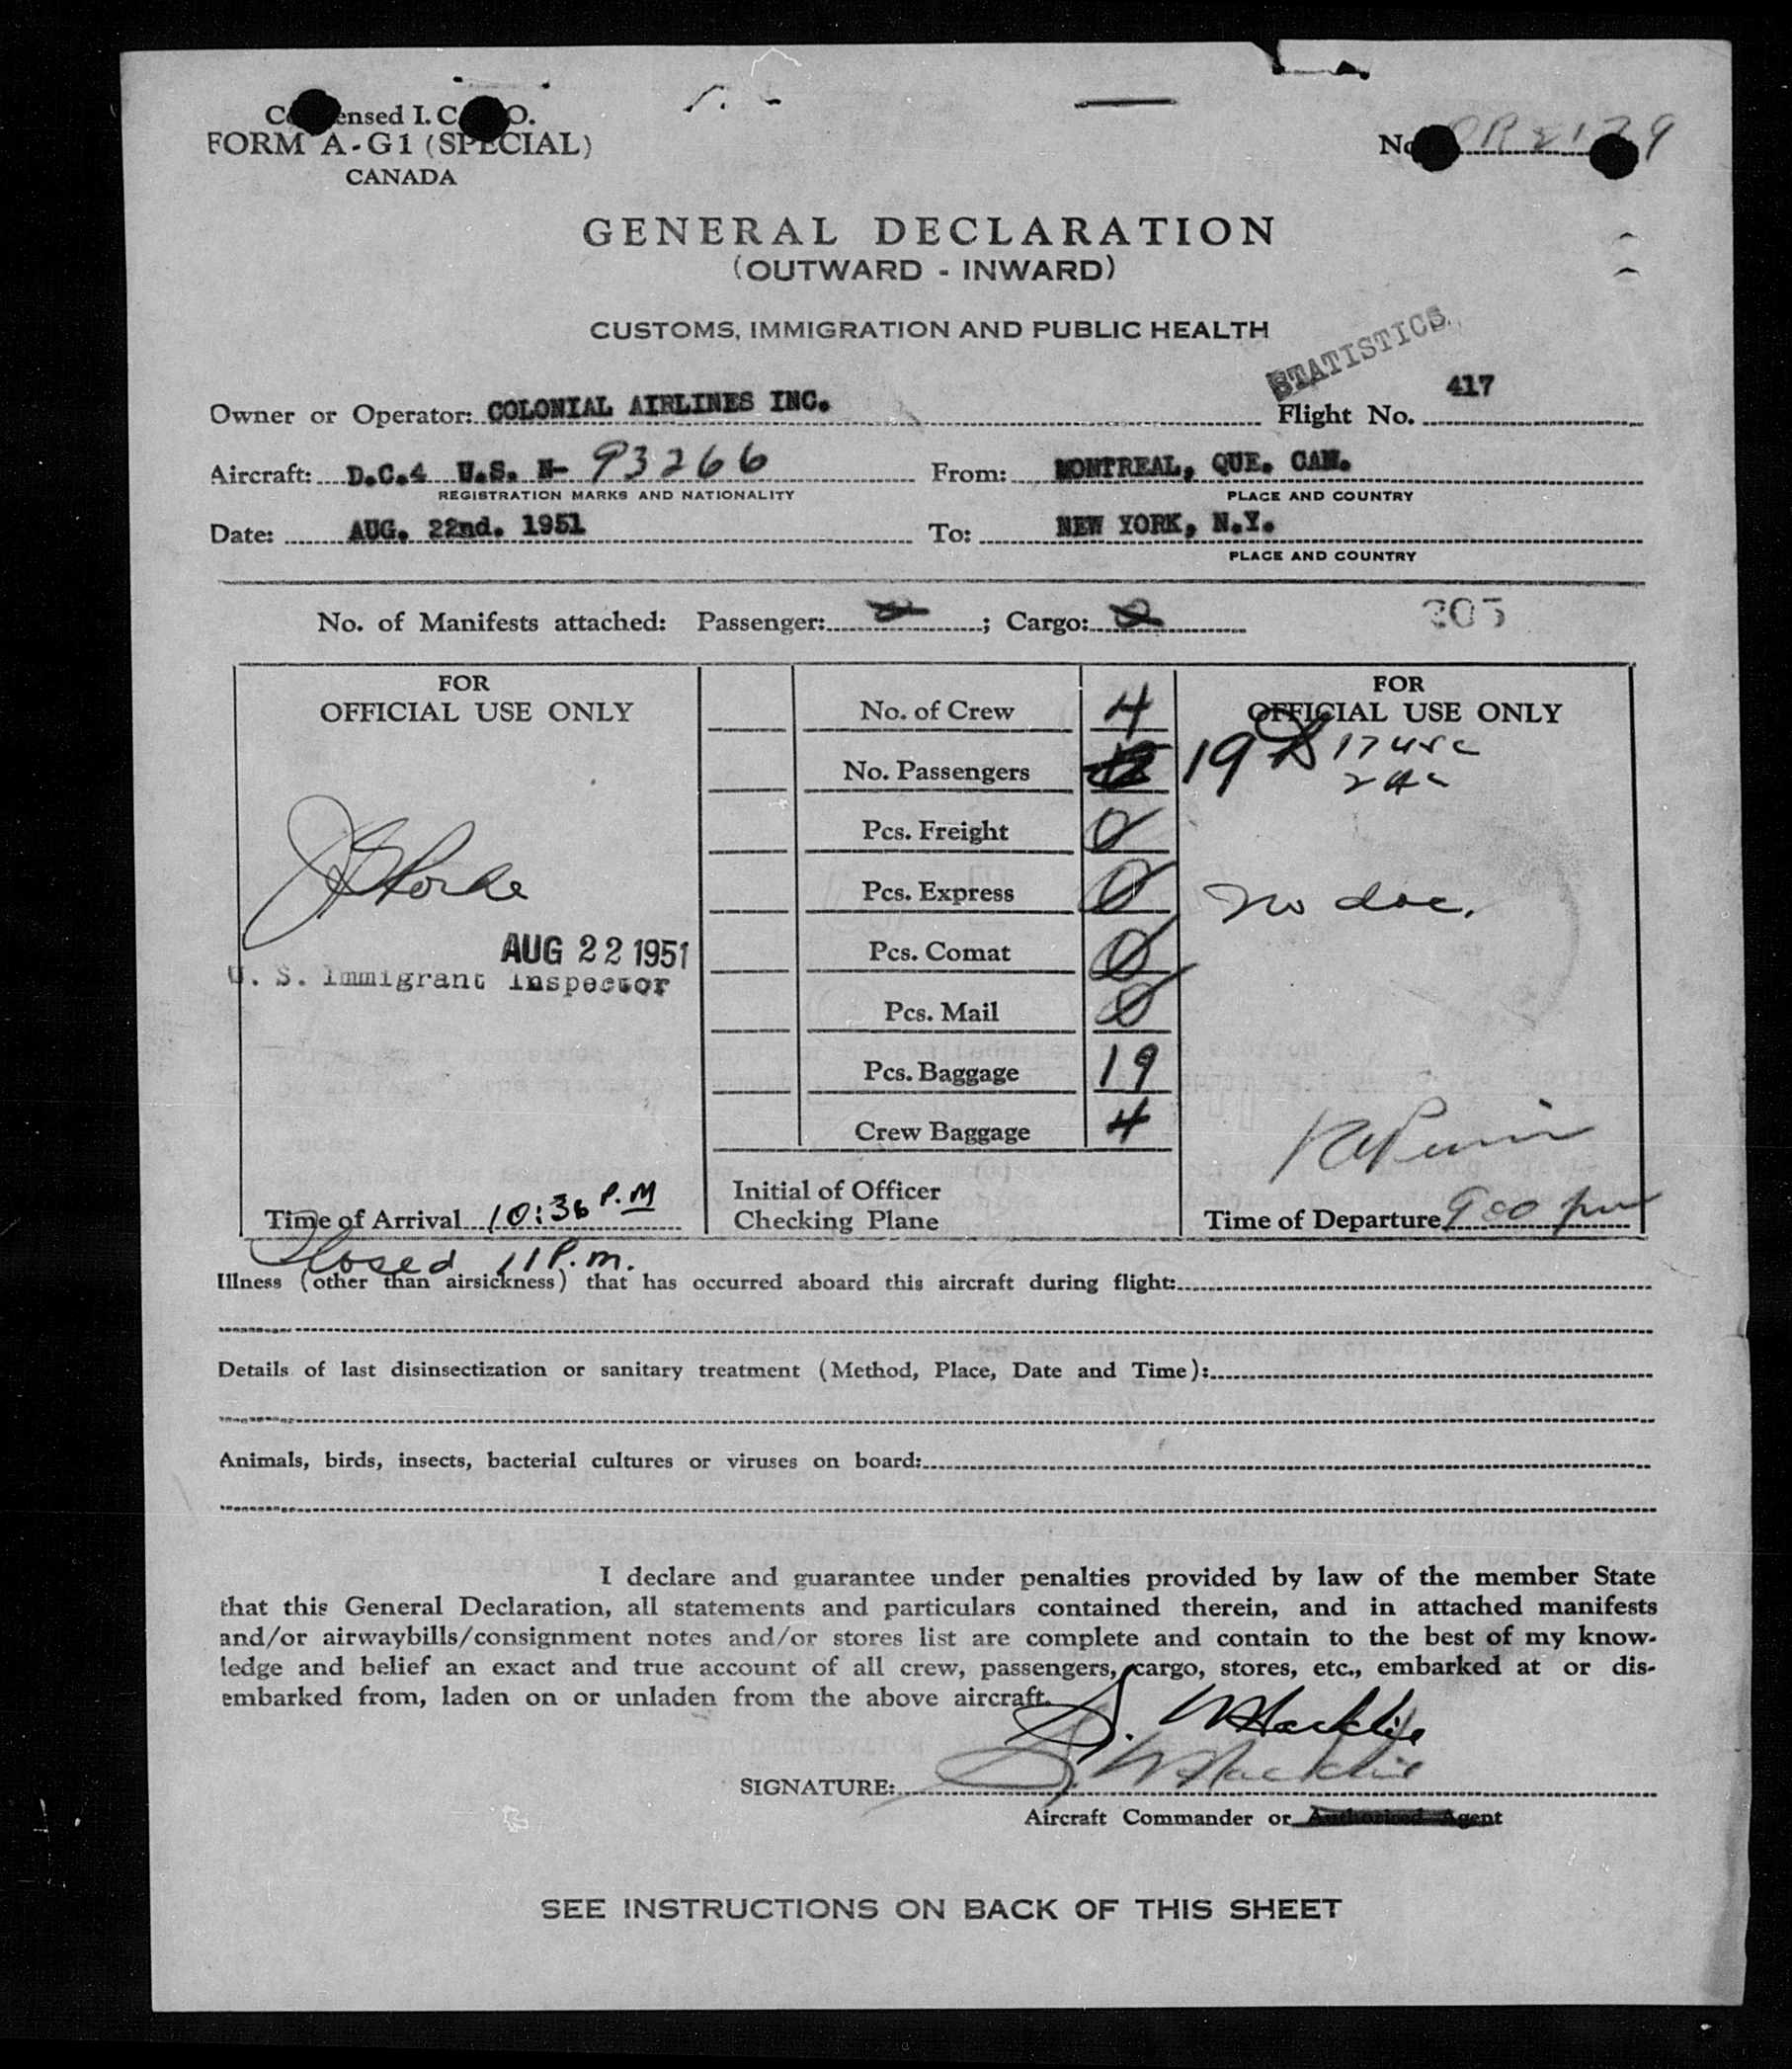 Condensed I. C. A. O.
FORM A-G1 (SPECIAL)
CANADA
No.
GENERAL DECLARATION
(OUTWARD - INWARD)
CUSTOMS, IMMIGRATION AND PUBLIC HEALTH
STATISTICS
Owner or Operator: COLONIAL AIRLINES INC. Flight No. 417
Aircraft: D.C.4 U.S. N- 93266 From: MONTREAL, QUE. CAN.
REGISTRATION MARKS AND NATIONALITY PLACE AND COUNTRY
Date: AUG. 22nd. 1951 To: NEW YORK, N.Y.
PLACE AND COUNTRY
No. of Manifests attached: Passenger: ; Cargo: 205
FOR
OFFICIAL USE ONLY
AUG 22 1951
U. S. Immigrant Inspector
Time of Arrival 10:36 P.M
Closed 11 P.m.
No. of Crew 4
No. Passengers 19
Pcs. Freight 0
Pcs. Express 0
Pcs. Comat 0
Pcs. Mail 0
Pcs. Baggage 19
Crew Baggage 4
Initial of Officer
Checking Plane
FOR
OFFICIAL USE ONLY
17 usc
no doc.
Time of Departure 900 pm
Illness (other than airsickness) that has occurred aboard this aircraft during flight:
Details of last disinsectization or sanitary treatment (Method, Place, Date and Time):
Animals, birds, insects, bacterial cultures or viruses on board:
I declare and guarantee under penalties provided by law of the member State
that this General Declaration, all statements and particulars contained therein, and in attached manifests
and/or airwaybills/consignment notes and/or stores list are complete and contain to the best of my know-
ledge and belief an exact and true account of all crew, passengers, cargo, stores, etc., embarked at or dis-
embarked from, laden on or unladen from the above aircraft.
SIGNATURE:
Aircraft Commander or Authorized Agent
SEE INSTRUCTIONS ON BACK OF THIS SHEET